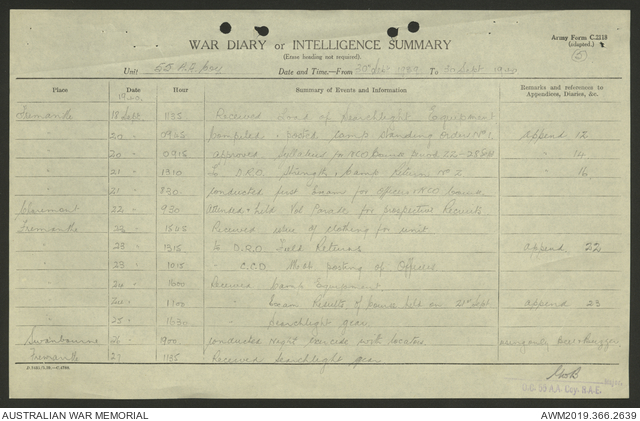 Army Form C.2118
(adapted.)
(5)
WAR DIARY or INTELLIGENCE SUMMARY
(Erase heading not required).
Unit
Date and Time—From 30 Sept 1939 To 30 Sept 1940
Place Date Hour Summary of Events and Information Remarks and references to Appendices, Diaries, &c.
1940
Fremantle 18 Sept 1135 Received Load of Searchlight Equipment
20 0945 Compiled & Posted Camp Standing Orders No 1. append 12
20 0915 approved Syllabus for NCO 22-28 Sept " 14
21 1310 To D.R.O. Strength & Camp return No 2. " 16
21 830 Conducted first Exam for officers & NCO course
Claremont 22 930 attended & held Vol Parade for prospective Recruits
Fremantle 22 1545 Received issue of clothing for unit
23 1315 To D.R.O Field Returns append 22
23 1015 " C.C.D posting of Officers
24 1600 Received Camp Equipment
24 1100 " Exam Results of course held on 21st Sept append 23
25 1630 " Searchlight gear
Swanbourne 26 900 Conducted night exercise with locators
Fremantle 27 1135 Received searchlight gear
O.C. 55 A.A. Coy. R.A.E.
AUSTRALIAN WAR MEMORIAL
AWM2019.366.2639